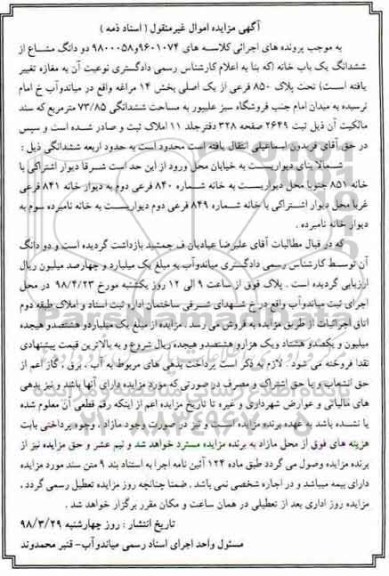 آگهی مزایده اموال غیرمنقول ( اسناد ذمه )
به موجب پرونده های اجرائی کلاسه های ۹۶۰۱۰۷۴و۹۸۰۰۰۵۸ دو دانگ مشاع از
ششدانگ یک باب خانه (که بنا به اعلام کارشناس رسمی دادگستری نوعیت آن به مغازه تغییر
یافته است) تحت پلاک ۸۵۰ فرعی از یک اصلی بخش ۱۴ مراغه واقع در میاندوآب خ امام
نرسیده به میدان امام جنب فروشگاه سیز علیپور به مساحت ششدانگی ۷۳/۸۵ مترمربع که سند
مالکیت آن ذیل ثبت ۲۶۴۹ صفحه ۳۲۸ دفترجلد ۱۱ املاک ثبت و صادر شده است و سپس
در حق آقای فریدون اسماعیلی انتقال یافته است محدود است به حدود اربعه ششدانگی ذیل :
شمالا بنای دیواریست به خیابان محل ورود از این حد است شرقا دیوار اشتراکی با
خانه ۸۵۱ جنوبا محل دیواریست به خانه شماره ۸۴۰ فرعی دوم به دیوار خانه ۸۴۱ فرعی
غربا محل دیوار اشتراکی با خانه شماره ۸۴۹ فرعی دوم دیواریست به خانه نامبرده سوم به
دیوار خانه نامبرده .
که در قبال مطالبات آقای علیرضا عبادیان ف جمشید بازداشت گردیده است و دو دانگ
آن توسط کارشناس رسمی دادگستری میاندوآب به مبلغ یک میلیارد و چهارصد میلیون ریال
ارزیابی گردیده است . پلاک فوق از ساعت ۹ الی ۱۲ روز یکشنبه مورخ ۹۸/۴/۲۳ در محل
اجرای ثبت میاندوآب واقع در خ شهدای شرقی ساختمان اداره ثبت اسناد و املاک طبقه دوم
اتاق اجرائیات از طریق مزایده به فروش می رسد . مزایده از مبلغ یک میلیاردو هشتصدو هیجده
میلیون و یکصدو هشتاد ویک هزارو هشتصدو هیجده ریال شروع و به بالاترین قیمت پیشنهادی
نقدا فروخته می شود . لازم به ذکر است پرداخت بدهی های مربوط به آب ، برق ، گاز اعم از
حق انشعاب و یا حق اشتراک و مصرف در صورتی که مورد مزایده دارای آنها باشد و نیز بدهی
های مالیاتی و عوارض شهرداری و غیره تا تاریخ مزایده اعم از اینکه رقم قطعی آن معلوم شده
یا نشده باشد به عهده برنده مزایده است و نیز در صورت وجود مازاد ، وجوه پرداختی بابت
هزینه های فوق از محل مازاد به برنده مزایده مسترد خواهد شد و نیم عشر و حق مزایده نیز از
برنده مزایده وصول می گردد طبق ماده ۱۲۴ آئین نامه اجرا به استناد بند ۹ متن سند مورد مزایده
دارای بیمه میباشد و در اجاره شخصی نمی باشد . ضمنا چنانچه روز مزایده تعطیل رسمی گردد ،
مزایده روز اداری بعد از تعطیلی در همان ساعت و مکان مقرر برگزار خواهد شد .
تاریخ انتشار : روز چهارشنبه ۹۸/۳/۲۹
مسئول واحد اجرای اسناد رسمی میاندوآب- قنبر محمدوند
ParsNamadData